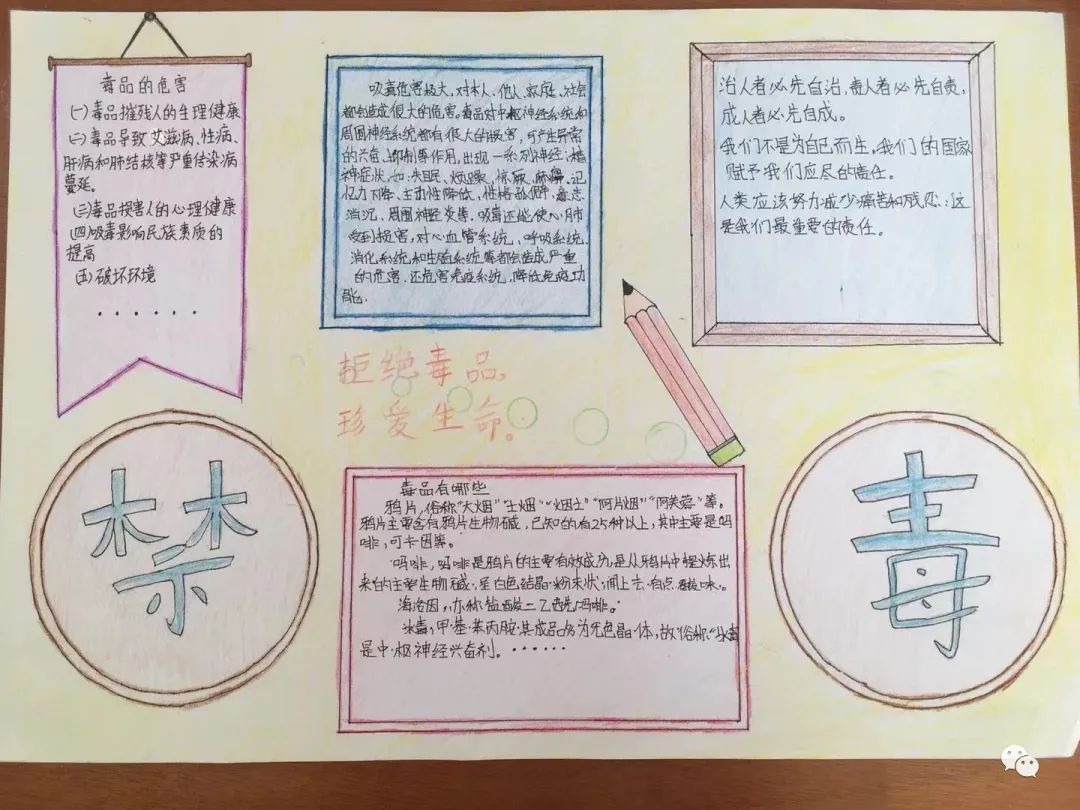 毒品的危害
(一)毒品摧残人的生理健康
(二)毒品导致艾滋病、性病、
肝病和肺结核等严重传染病
蔓延。
(三)毒品损害人的心理健康
(四)吸毒影响民族素质的
提高
(五)破坏环境
......
吸毒危害极大,对本人、他人、家庭、社会
都会造成很大的危害。毒品对中枢神经系统和
周围神经系统都有很大的损害,可产生异常
的兴奋、抑制等作用,出现一系列神经、精
神症状,如:失眠、烦躁、惊厥、麻痹、记
忆力下降、主动性降低,性格孤僻、意志
消沉、周围神经炎等。吸毒还能使心肺
受到损害,对心血管系统,呼吸系统、
消化系统和生殖系统等都会造成严重
的危害.还危害免疫系统,降低免疫功
能.
治人者必先自治,责人者必先自责,
成人者必先自成。
我们不是为自己而生,我们的国家
赋予我们应尽的责任。
人类应该努力减少痛苦和残忍:这
是我们最重要的责任。
拒绝毒品,
珍爱生命。
禁
毒品有哪些
鸦片,俗称“大烟”“土烟”“烟土”“阿片烟”“阿芙蓉”等。
鸦片主要含有鸦片生物碱,已知的有25种以上,其中主要是吗
啡,可卡因等。
吗啡,吗啡是鸦片的主要有效成分,是从鸦片中提炼出
来的主要生物碱,呈白色结晶粉末状,闻上去有点酸味。
海洛因,亦称盐酸二乙酰吗啡。
冰毒,甲基苯丙胺,其成品为无色晶体,故俗称“冰毒
是中枢神经兴奋剂。......
毒